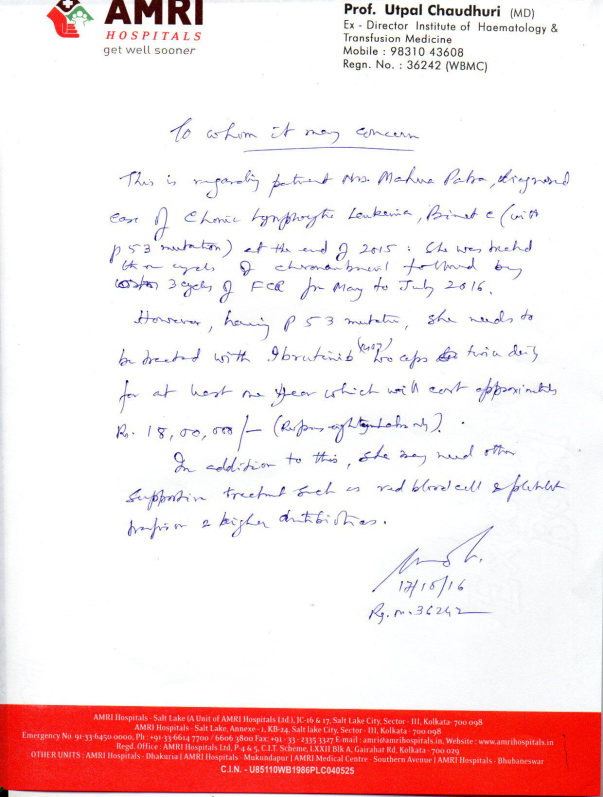 AMRI
HOSPITALS
get well sooner
Prof. Utpal Chaudhuri (MD)
Ex - Director Institute of Haematology &
Transfusion Medicine
Mobile : 98310 43608
Regn. No. : 36242 (WBMC)
To whom it may concern
This is regarding patient Mrs. Mahua Patra, diagnosed
case of Chronic Lymphocytic Leukemia, Binet C (with
p 53 mutation) at the end of 2015 : She was treated
cycles of followed by
3 cycles of FCR for May to July 2016.
However, having p 53 mutation, she needs to
be treated with Ibrutinib two caps twice daily
for at least one year which will cost approximately
Rs. 18,00,000/- (Rupees eighteen lakhs only).
In addition to this, she may need other
supportive treatment such as red blood cell & platelet
transfusion & higher antibiotics.
17/10/16
Rg. no. 36242
AMRI Hospitals - Salt Lake (A Unit of AMRI Hospitals Ltd.), JC-16 & 17, Salt Lake City, Sector - III, Kolkata- 700 098
AMRI Hospitals - Salt Lake, Annexe - 1, KB-24, Salt lake City, Sector - III, Kolkata- 700 098
Emergency No. 91-33-6450 0000, Ph : +91-33-6614 7700 / 6606 3800 Fax: +91 - 33 - 2335 3327 E-mail : amri@amrihospitals.in, Website : www.amrihospitals.in
Regd. Office : AMRI Hospitals Ltd, P-4 & 5, C.I.T. Scheme, LXXII Blk A, Gairahat Rd, Kolkata - 700 029
OTHER UNITS : AMRI Hospitals - Dhakuria | AMRI Hospitals - Mukundapur | AMRI Medical Centre - Southern Avenue | AMRI Hospitals - Bhubaneswar
C.I.N. - U85110WB1986PLC040525